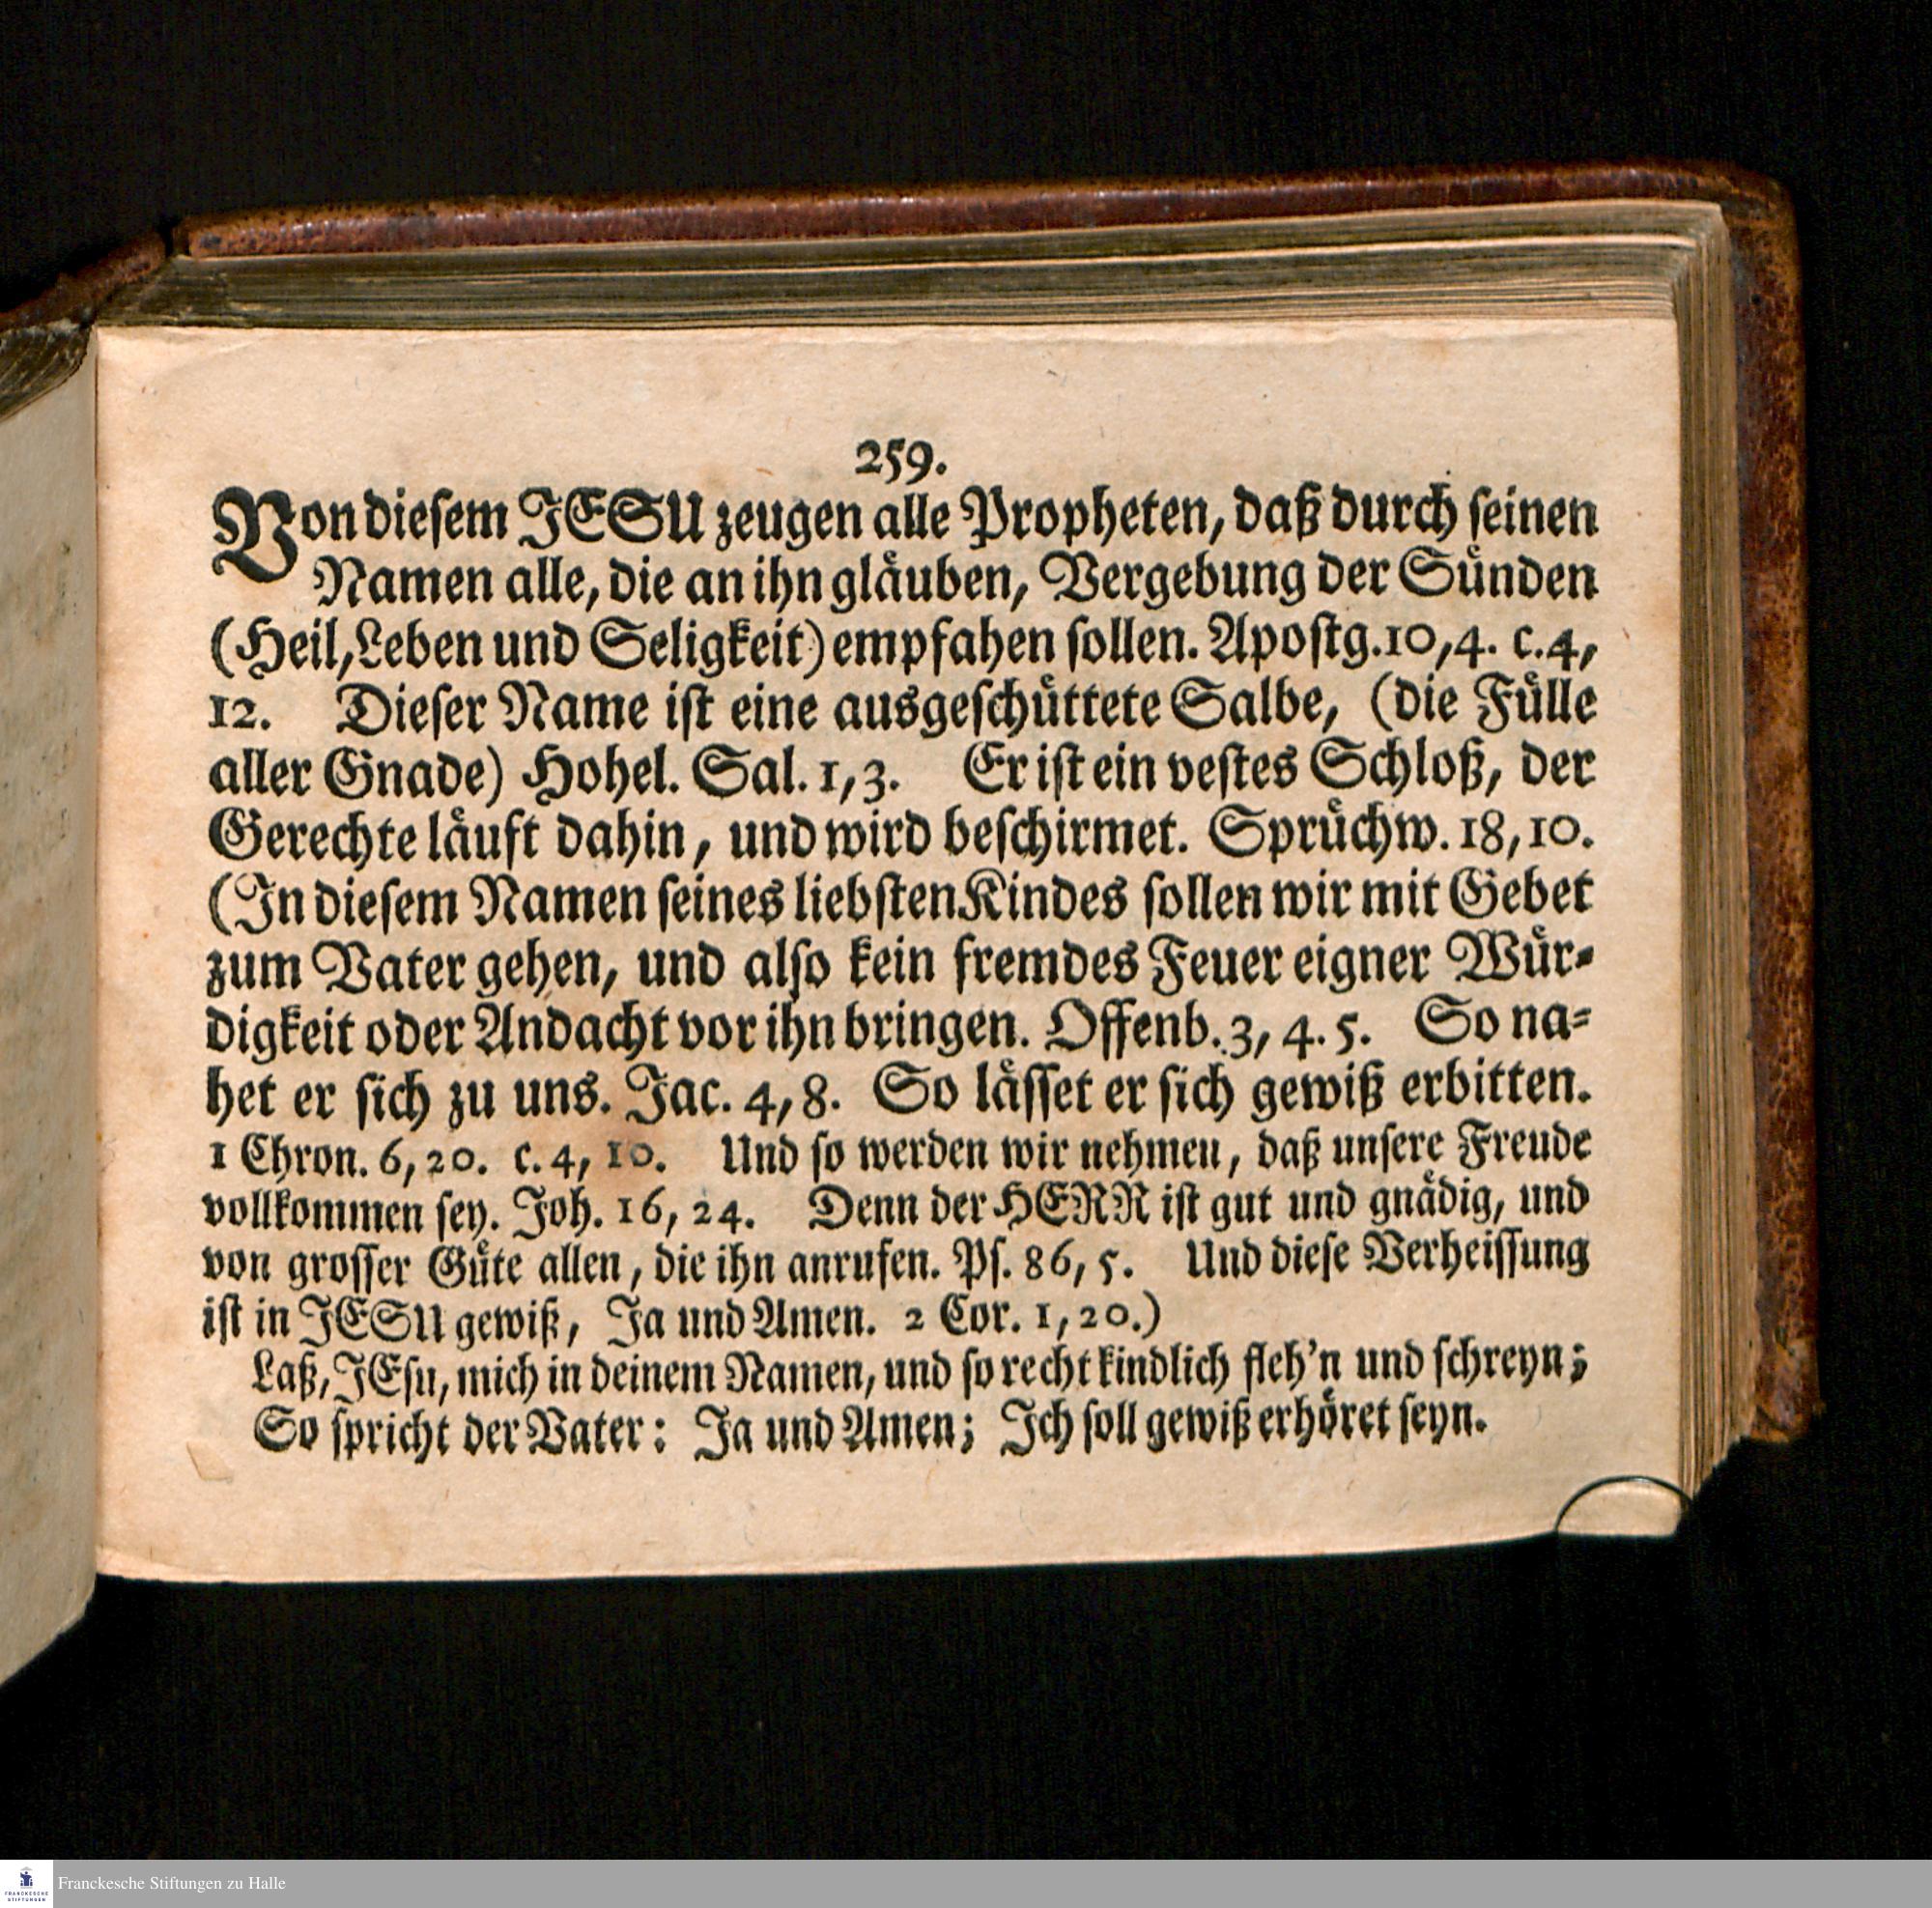 259.
Von diesem JESU zeugen alle Propheten, daß durch seinen
Namen alle, die an ihn gläuben, Vergebung der Sünden
(Heil, Leben und Seligkeit) empfahen sollen. Apostg. 10,4. c.4,
12. Dieser Name ist eine ausgeschüttete Salbe, (die Fülle
aller Gnade) Hohel. Sal. 1,3. Er ist ein vestes Schloß, der
Gerechte läuft dahin, und wird beschirmet. Sprüchw. 18,10.
(In diesem Namen seines liebsten Kindes sollen wir mit Gebet
zum Vater gehen, und also kein fremdes Feuer eigner Wür-
digkeit oder Andacht vor ihn bringen. Offenb. 3, 4. 5. So na-
het er sich zu uns. Jac. 4,8. So lässet er sich gewiß erbitten.
1 Chron. 6,20. c. 4, 10. Und so werden wir nehmen, daß unsere Freude
vollkommen sey. Joh. 16, 24. Denn der HERR ist gut und gnädig, und
von grosser Güte allen, die ihn anrufen. Ps. 86, 5. Und diese Verheissung
ist in JESU gewiß, Ja und Amen. 2 Cor. 1, 20.)
Laß, JEsu, mich in deinem Namen, und so recht kindlich fleh'n und schreyn;
So spricht der Vater: Ja und Amen; Ich soll gewiß erhöret seyn.
FRANCKESCHE
STIFTUNGEN
Franckesche Stiftungen zu Halle